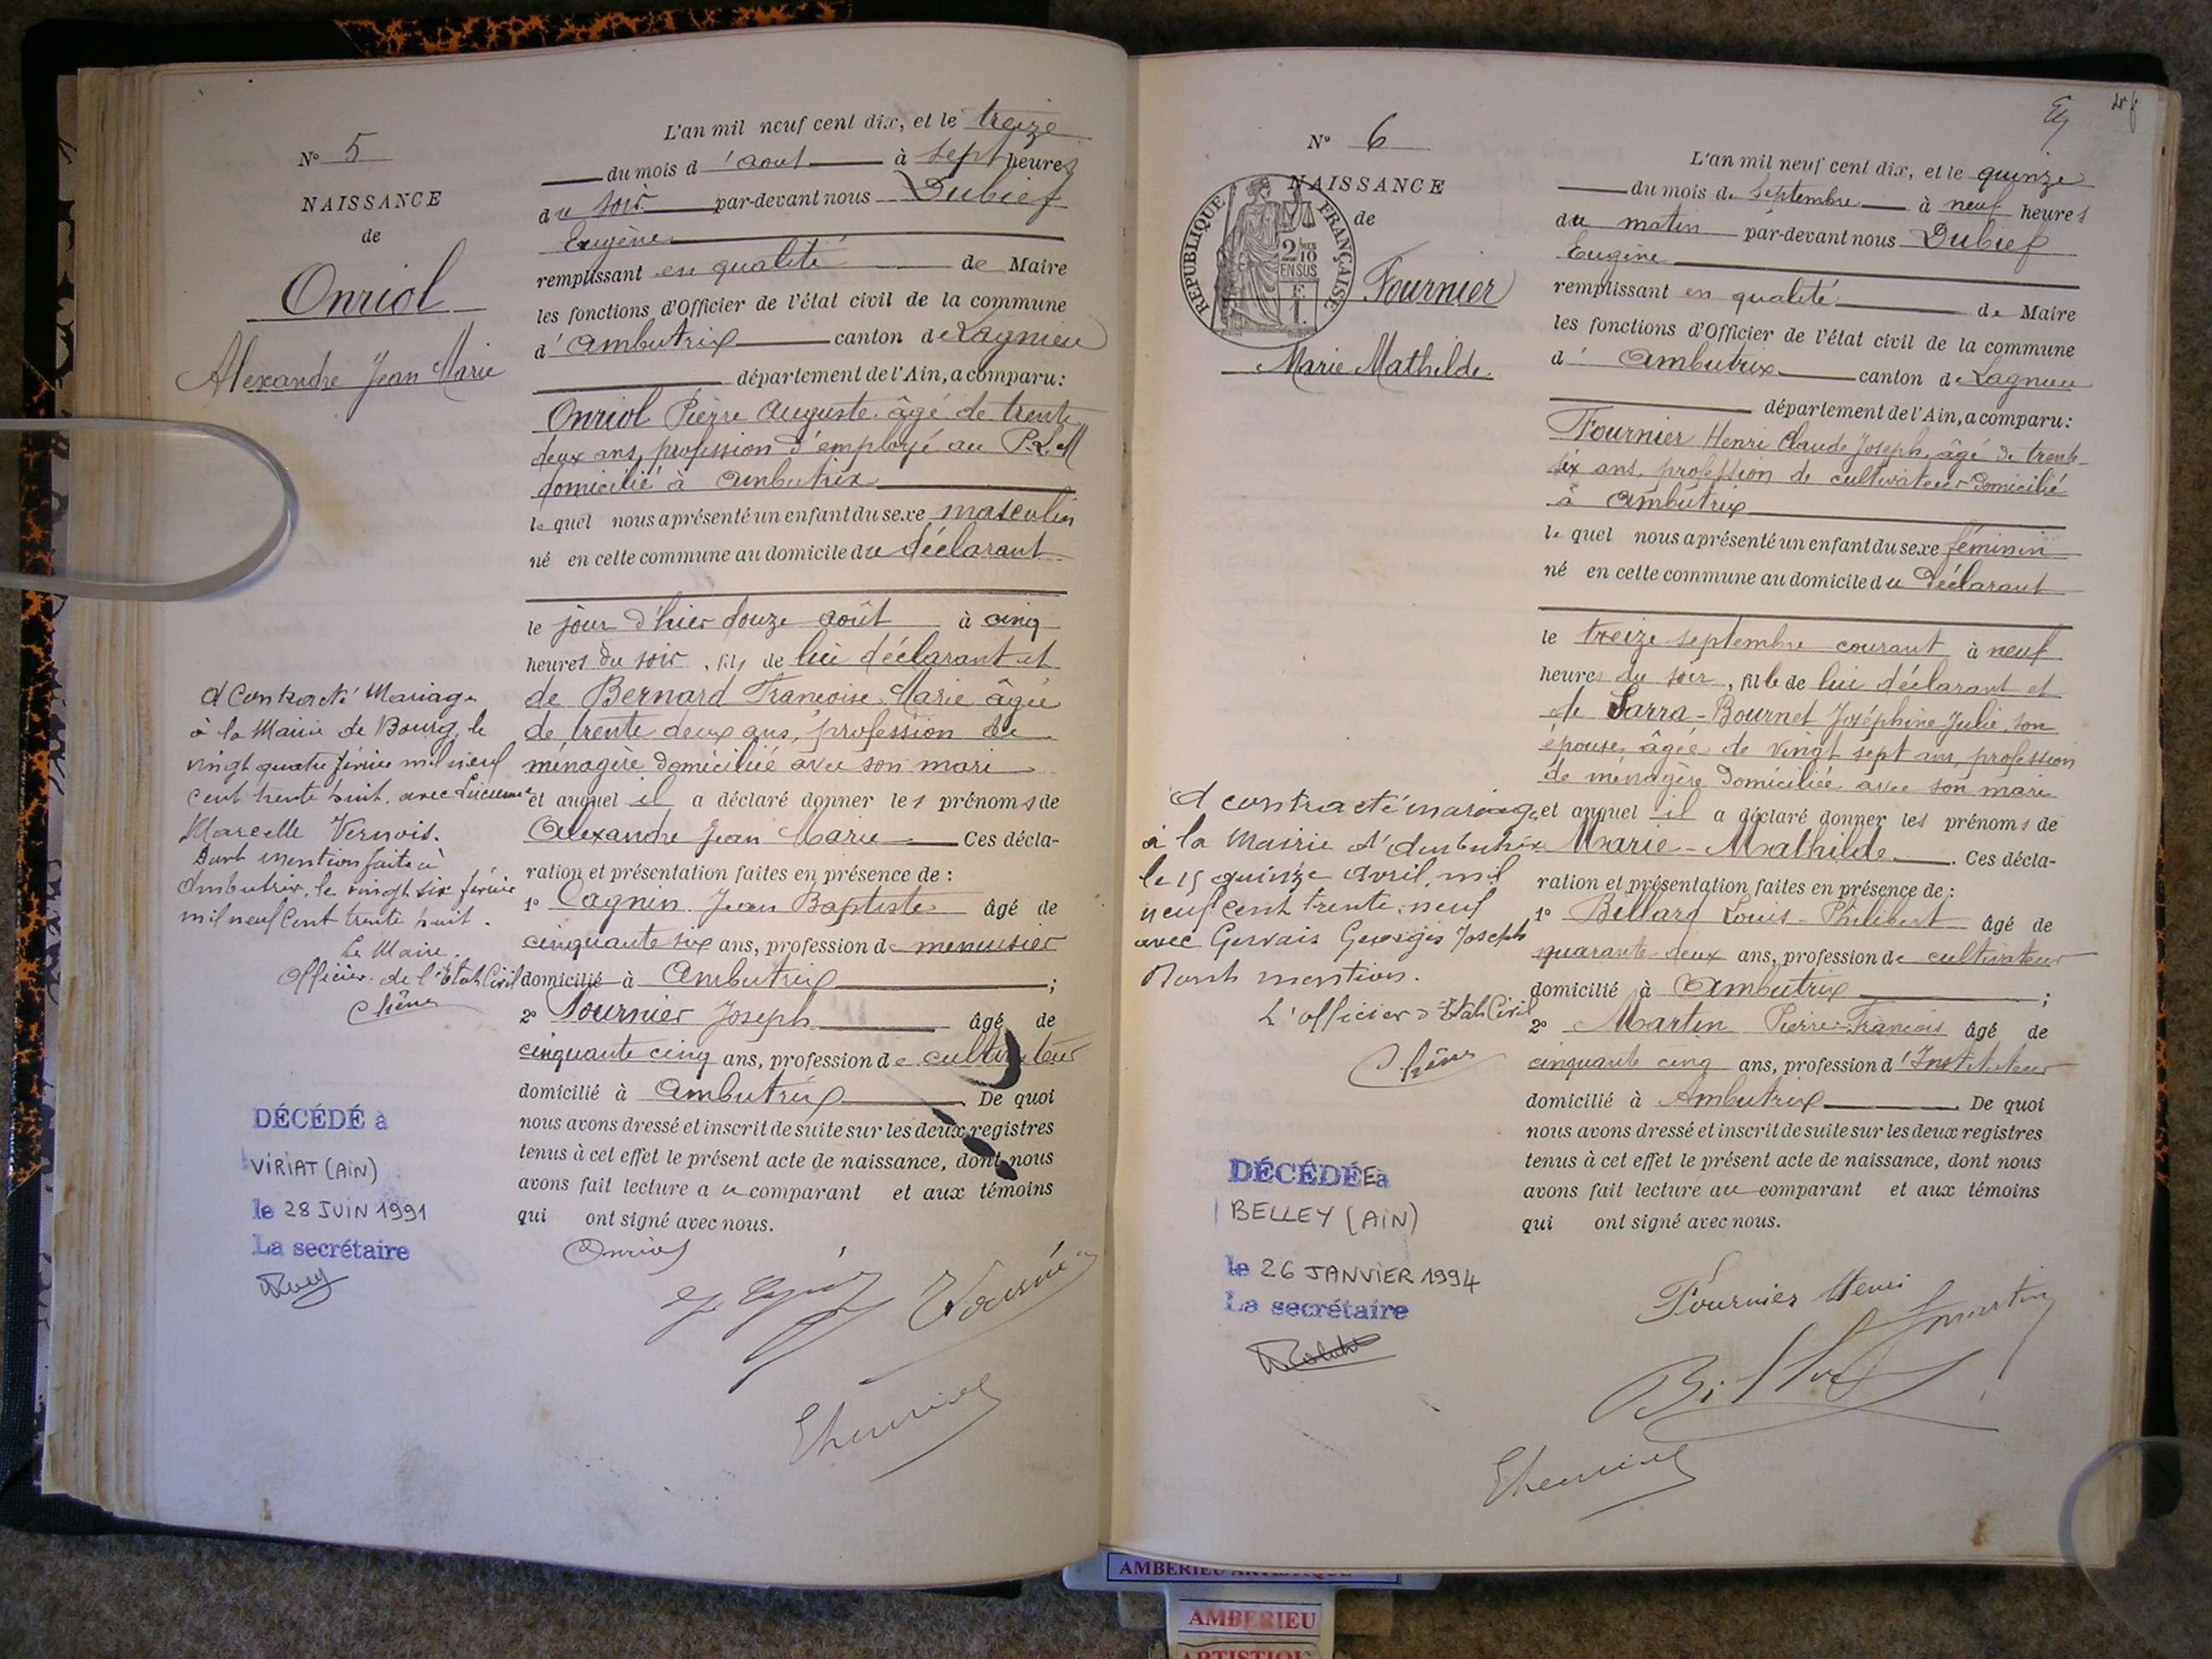 N° 5
NAISSANCE
de
Onriol
Alexandre Jean Marie
L'an mil neuf cent dix, et le treize
du mois d'aout à sept heures
du soir par-devant nous Dubief
Eugène
remplissant en qualité de Maire
les fonctions d'Officier de l'état civil de la commune
d'Ambutrix canton de Lagnieu
département de l'Ain, a comparu:
Onriol Pierre Auguste âgé de trente
deux ans, profession d'employé au P.L.M
domicilié à Ambutrix
lequel nous a présenté un enfant du sexe masculin
né en cette commune au domicile du déclarant
le jour d'hier douze août à cinq
heures du soir, fils de lui déclarant et
de Bernard Francoise Marie âgée
de trente deux ans, profession de
ménagère domiciliée avec son mari
et auquel il a déclaré donner les prénoms de
Alexandre Jean Marie Ces décla-
ration et présentation faites en présence de :
1° Cagnin Jean Baptiste âgé de
cinquante six ans, profession de menuisier
domicilié à Ambutrix ;
2° Fournier Joseph âgé de
cinquante cinq ans, profession de cultivateur
domicilié à Ambutrix. De quoi
nous avons dressé et inscrit de suite sur les deux registres
tenus à cet effet le présent acte de naissance, dont nous
avons fait lecture au comparant et aux témoins
qui ont signé avec nous.
Onriol
A Contracté Mariage
à la Mairie de Bourg, le
vingt quatre février mil neuf
cent trente huit. avec Lucienne
Marcelle Vernois.
Dont mention faite à
Ambutrix, le vingt six février
mil neuf cent trente huit.
Le Maire.
Officier de l'Etat Civil
DÉCÉDÉ à
VIRIAT (AIN)
le 28 JUIN 1991
La secrétaire
N° 6
NAISSANCE
de
RÉPUBLIQUE FRANÇAISE
2/10 EN SUS
Fournier
Marie Mathilde
L'an mil neuf cent dix, et le quinze
du mois de septembre à neuf heures
du matin par-devant nous Dubief
Eugène
remplissant en qualité de Maire
les fonctions d'Officier de l'état civil de la commune
d'Ambutrix canton de Lagnieu
département de l'Ain, a comparu:
Fournier Henri Claude Joseph, âgé de trente-
six ans, profession de cultivateur domicilié
à Ambutrix
lequel nous a présenté un enfant du sexe féminin
né en cette commune au domicile du Déclarant
le treize septembre courant à neuf
heures du soir, fille de lui déclarant et
de Sarra-Bournet Joséphine Julie, son
épouse, âgée de vingt sept ans, profession
de ménagère domiciliée avec son mari
et auquel il a déclaré donner les prénoms de
Marie-Mathilde. Ces décla-
ration et présentation faites en présence de :
1° Billard Louis-Philibert âgé de
quarante-deux ans, profession de cultivateur
domicilié à Ambutrix ;
2° Martin Pierre-Francois âgé de
cinquante cinq ans, profession d'Instituteur
domicilié à Ambutrix. De quoi
nous avons dressé et inscrit de suite sur les deux registres
tenus à cet effet le présent acte de naissance, dont nous
avons fait lecture au comparant et aux témoins
qui ont signé avec nous.
Fournier Henri
Martin
A contracté mariage
à la Mairie d'Ambutrix
le 15 quinze Avril, mil
neuf cent trente-neuf
avec Gervais Georges Joseph
Dont mention.
L'officier d'Etat Civil
DÉCÉDÉE à
BELLEY (AIN)
le 26 JANVIER 1994
La secrétaire
AMBERIEU ARTISTIQUE
AMBERIEU
ARTISTIQUE